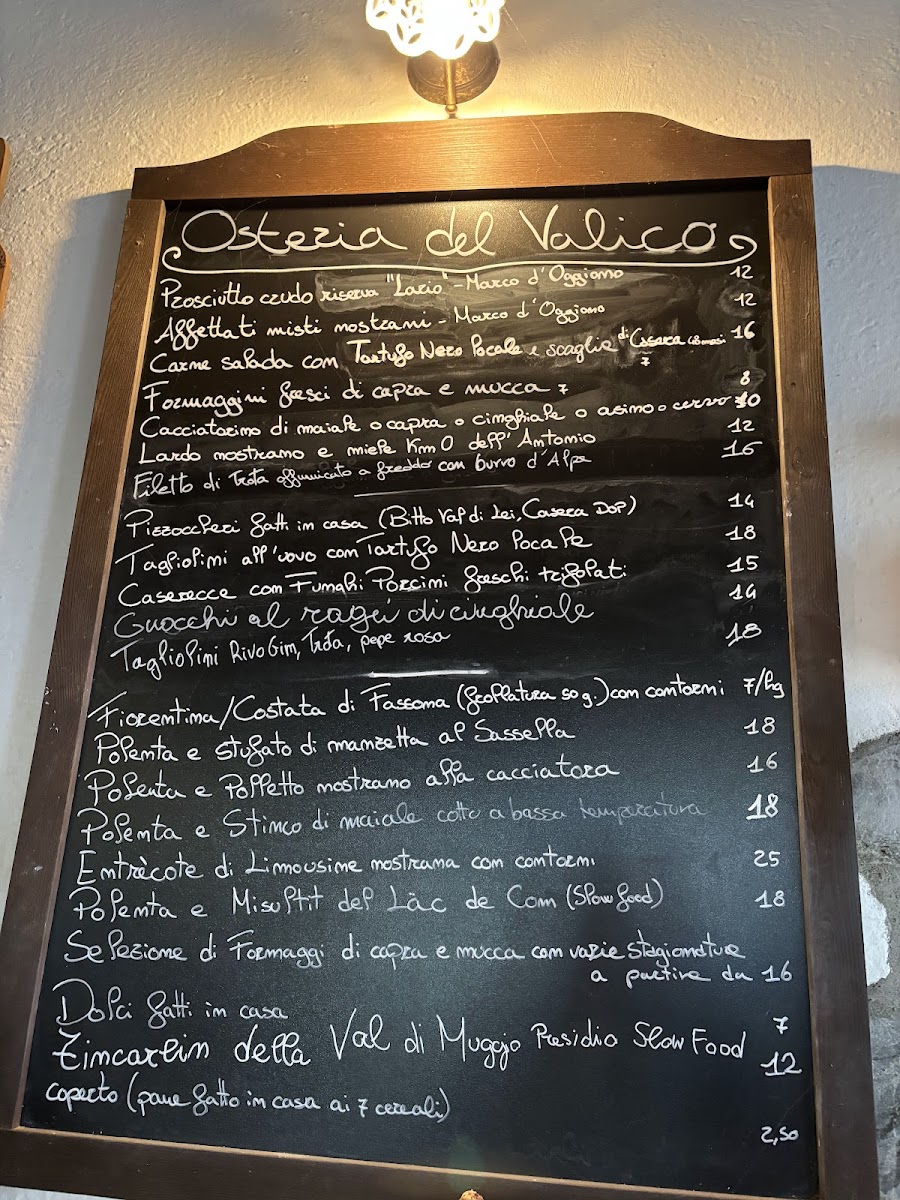 Osteria del Valico
Prosciutto crudo riserva "Lario" - Marco d'Oggiono 12
Affettati misti nostrani - Marco d'Oggiono 12
Carne salada con Tartufo Nero Locale e scaglie di Casera 16
Formaggini freschi di capra e mucca 7
Cacciatorino di maiale o capra o cinghiale o asino o cervo 8
Lardo nostrano e miele Km0 dell'Antonio 10
Filetto di Trota affumicato a freddo con burro d'Alpe 12 16
Pizzoccheri fatti in casa (Bitto Val di Lei, Casera DOP) 14
Tagliolini all'uovo con Tartufo Nero Locale 18
Caserecce con Funghi Porcini freschi trifolati 15
Gnocchi al ragù di cinghiale 14
Tagliolini RivoGin, Trota, pepe rosa 18
Fiorentina/Costata di Fassona (frollatura 50 g.) con contorni 7/hg
Polenta e stufato di manzetta al Sassella 18
Polenta e Polletto nostrano alla cacciatora 16
Polenta e Stinco di maiale cotto a bassa temperatura 18
Entrècote di Limousine nostrana con contorni 25
Polenta e Misultit del Läc de Com (Slow food) 18
Selezione di Formaggi di capra e mucca con varie stagionature
a partire da 16
Dolci fatti in casa 7
Zincarlin della Val di Muggio Presidio Slow Food 12
coperto (pane fatto in casa ai 7 cereali)
2,50